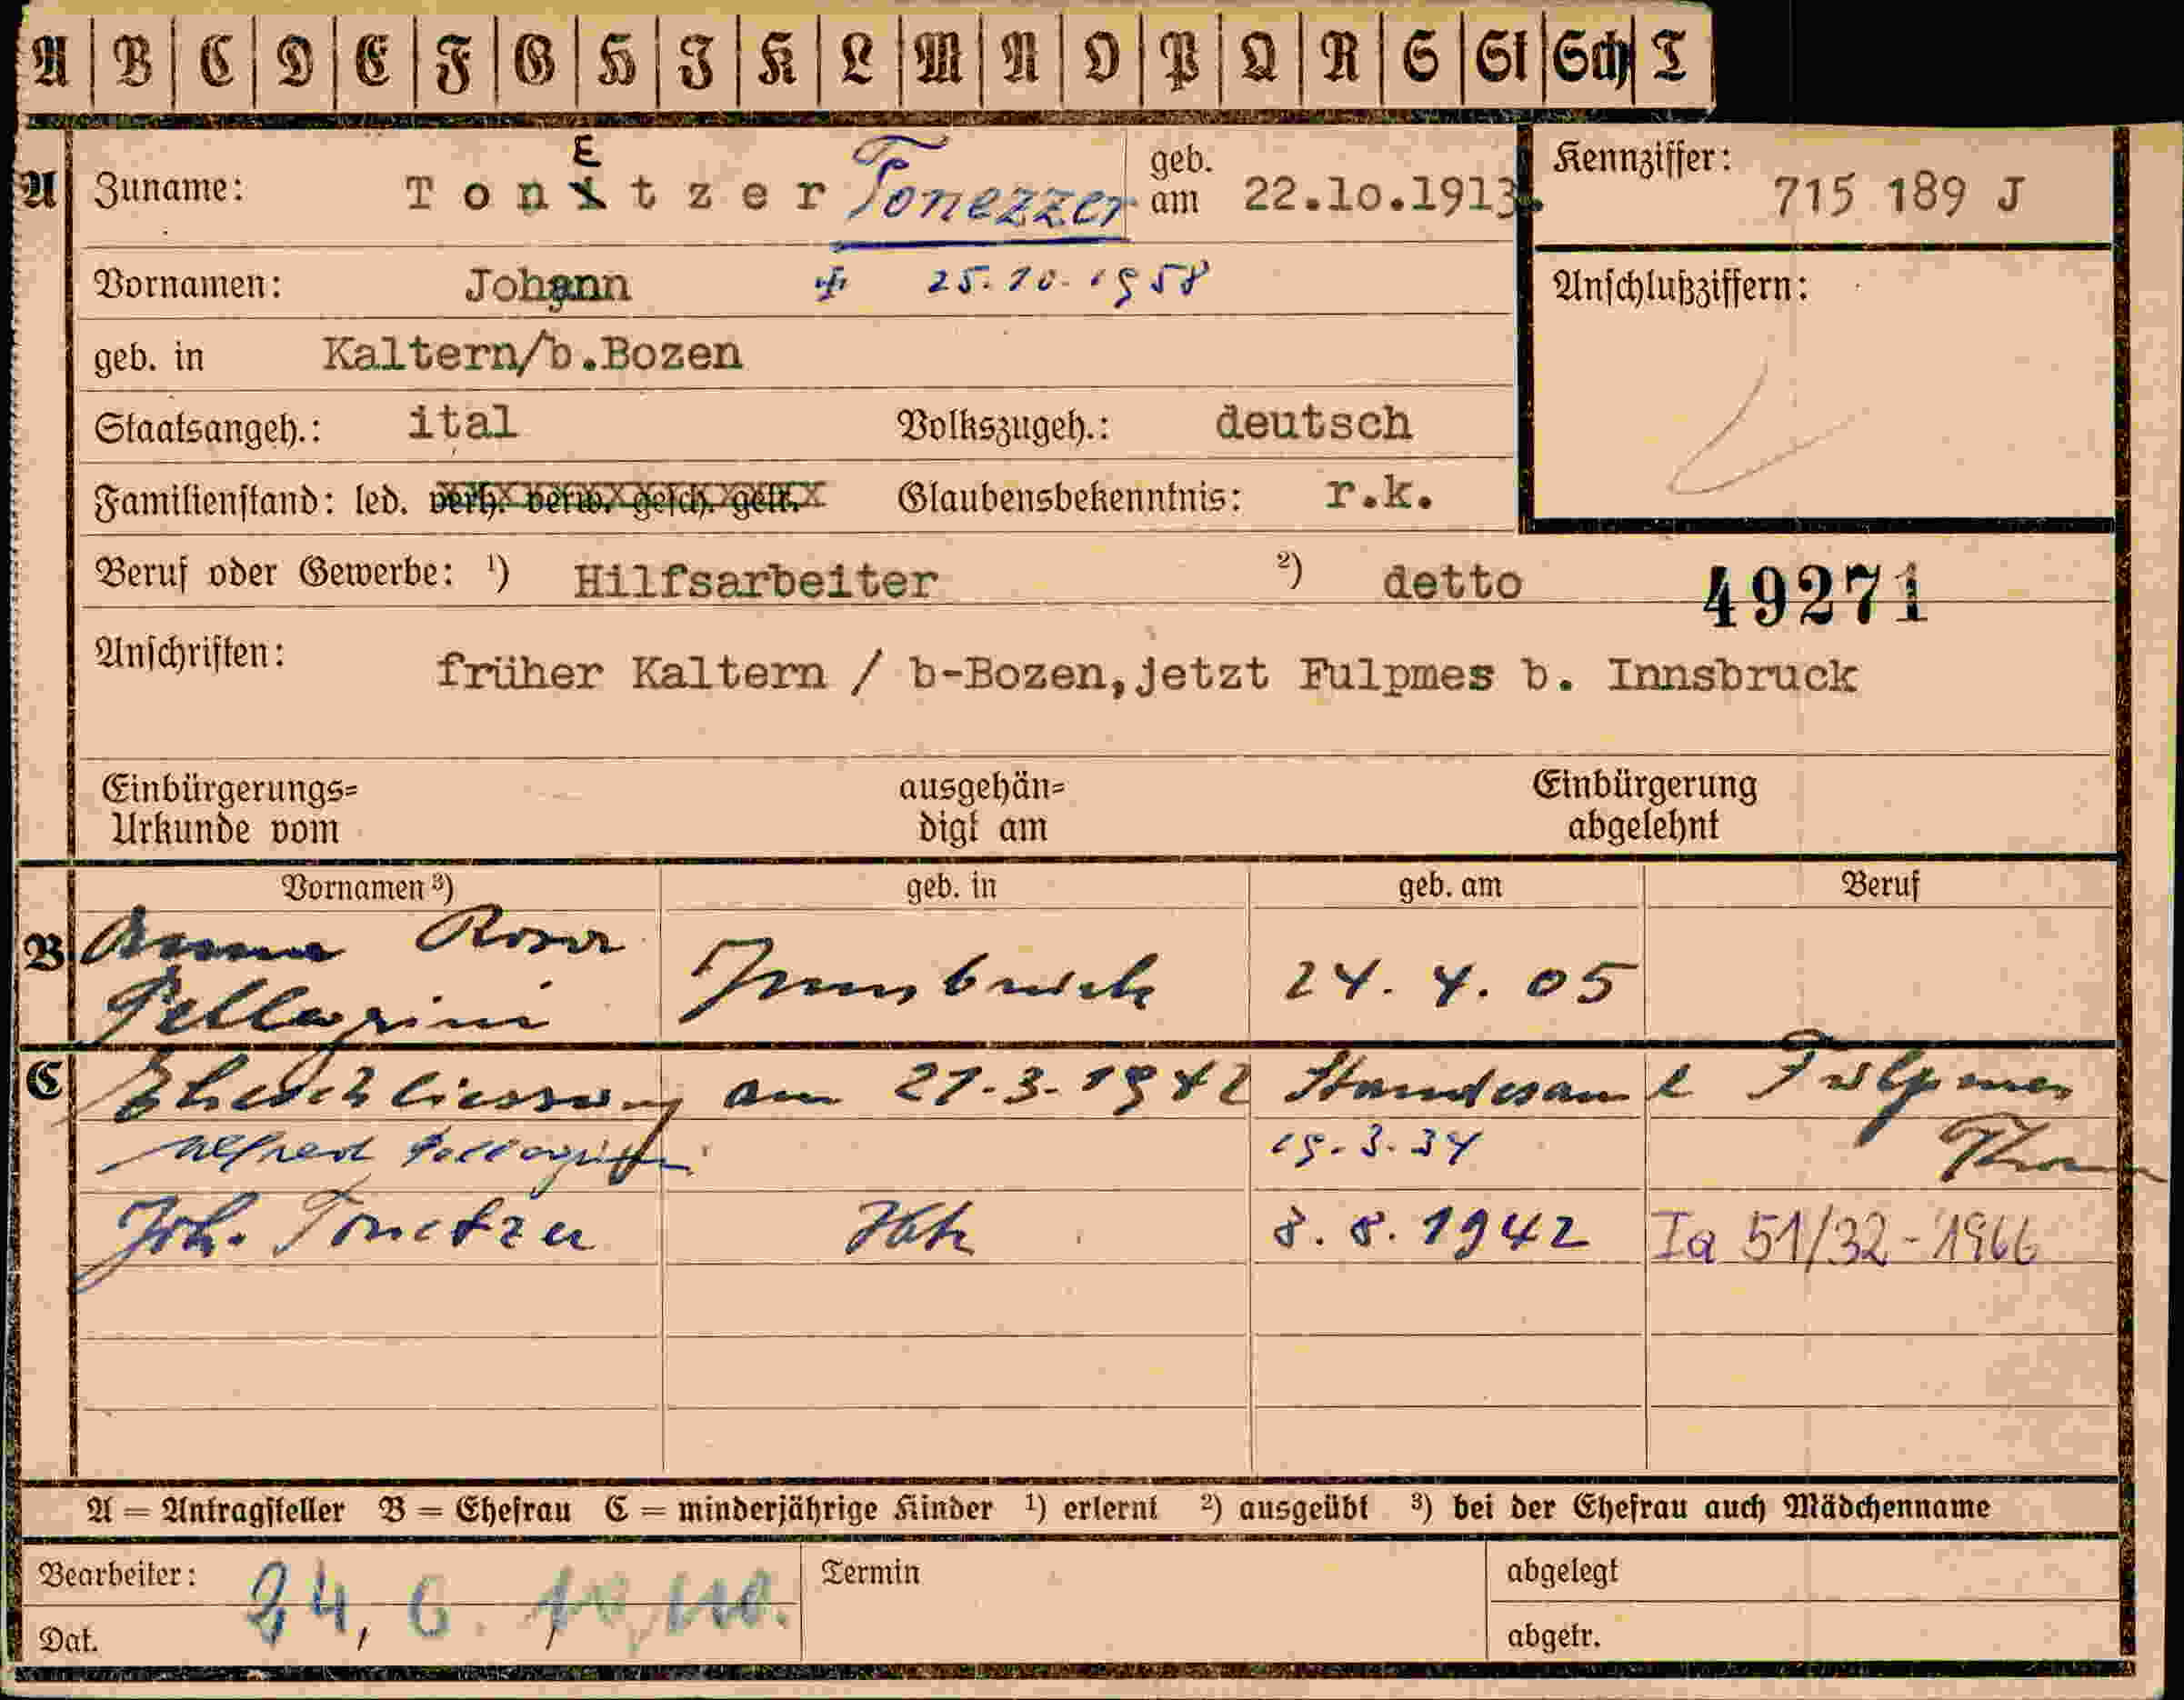 A B C D E F G H I K L M N O P Q R S St Sch T
A Zuname: Tonitzer E Tonezzer geb. am 22.10.1913. Kennziffer: 715 189 J
Vornamen: Johann 25.10.1958 Anschlußziffern:
geb. in Kaltern/b.Bozen
Staatsangeh.: ital Volkszugeh.: deutsch
Familienstand: led. verh. verw. gesch. getr. Glaubensbekenntnis: r.k.
Beruf oder Gewerbe: ¹) Hilfsarbeiter ²) detto 49271
Anschriften: früher Kaltern / b-Bozen,jetzt Fulpmes b. Innsbruck
Einbürgerungs= ausgehän= Einbürgerung
Urkunde vom digt am abgelehnt
Vornamen ³) geb. in geb. am Beruf
B Anna Rosa
Pellegrini Innsbruck 24. 4. 05
C Eheschliessung am 21.3.1942 Standesamt Fulpmes
Alfred 19.3.34
Joh. Tonetzer Ibk 8.8.1942 Ia 51/32-1966
A = Antragsteller B = Ehefrau C = minderjährige Kinder ¹) erlernt ²) ausgeübt ³) bei der Ehefrau auch Mädchenname
Bearbeiter: 24, 6. Termin abgelegt
Dat. abgetr.